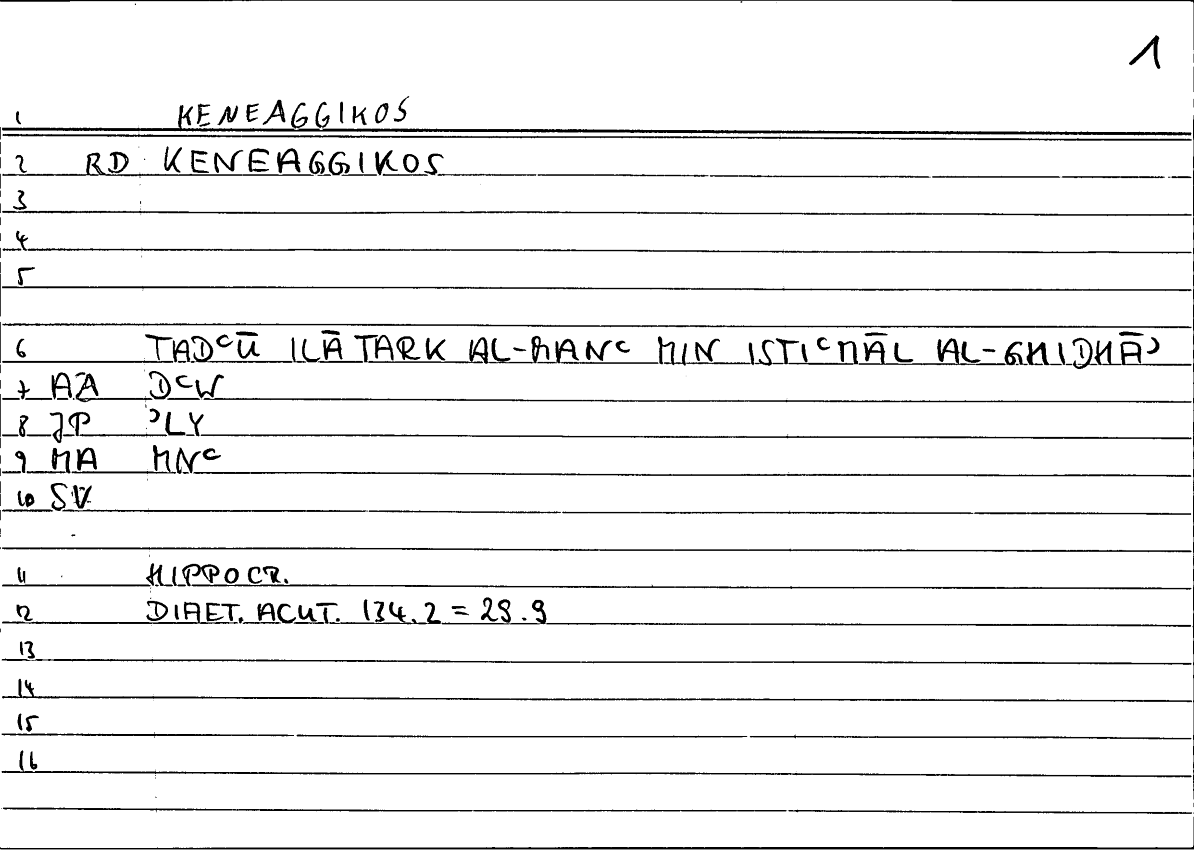 1
1 KENEAGGIKOS
2 RD KENEAGGIKOS
3
4
5
6 TADᶜŪ ILĀ TARK AL-MANᶜ MIN ISTIᶜMĀL AL-GHIDHĀʾ
7 AA DᶜW
8 JP ʾLY
9 MA MNᶜ
10 SV
11 HIPPOCR.
12 DIAET. ACUT. 134.2 = 29.9
13
14
15
16